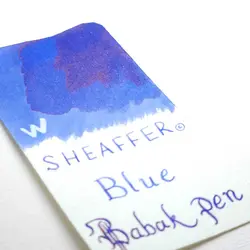 W
SHEAFFER©
Blue
Babak pen